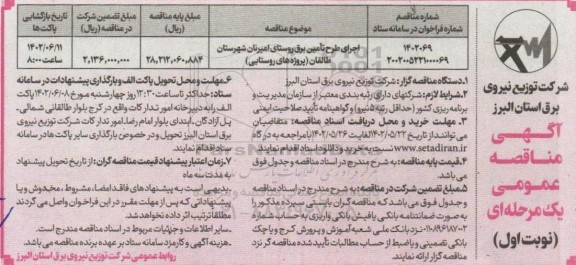 شرکت توزیع نیروی
برق استان البرز
آگهی
مناقصه
عمومی
یک مرحله‌ای
(نوبت اول)
شماره مناقصه
شماره فراخوان در سامانه ستاد
موضوع مناقصه
مبلغ پایه مناقصه
(ریال)
مبلغ تضمین شرکت در مناقصه
(ریال)
تاریخ بازگشایی
پاکت‌ها
۱۴۰۲-۶۹
۲۰۰۲۰۰۵۲۲۱۰۰۰۰۶۹
اجرای طرح تأمین برق روستای امیرنان شهرستان
طالقان (پروژه‌های روستایی)
۲۸,۲۱۲,۰۶۰,۸۸۴
۲,۱۳۶,۰۰۰,۰۰۰
۱۴۰۲/۰۶/۱۱
ساعت ۸:۰۰
۱. دستگاه مناقصه گزار: شرکت توزیع نیروی برق استان البرز
۲. شرایط لازم: شرکتهای دارای رتبه بندی معتبر از سازمان مدیریت و
برنامه ریزی کشور (حداقل رتبه ۵ نیرو) و گواهینامه تأیید صلاحیت ایمنی
۳. مهلت خرید و محل دریافت اسناد مناقصه: متقاضیان
می توانند از تاریخ ۱۴۰۲/۰۵/۲۲ لغایت ۱۴۰۲/۰۵/۲۶ با مراجعه به درگاه
www.setadiran.ir نسبت به خرید و دانلود اسناد اقدام نمایند.
۴. قیمت پایه مناقصه: به شرح مندرج در اسناد مناقصه و جدول فوق
می باشد.
۵. مبلغ تضمین شرکت در مناقصه: به شرح مندرج در اسناد مناقصه
و جدول فوق می باشد که مناقصه گران بایستی سپرده مذکور را
به صورت ضمانتنامه بانکی یا فیش بانکی واریزی به حساب شماره
۱۱۰۸۹۶۱۸۷۰۰۲ نزد بانک ملی شعبه آموزش و پرورش کرج و یا چک
بانکی تضمینی و یا ضبط از حساب مطالبات تأیید شده مناقصه گر نزد
۶. مهلت و محل تحویل پاکت الف و بارگذاری پیشنهادات در سامانه
ستاد: حداکثر تا ساعت ۱۳:۳۰ روز چهارشنبه مورخ ۱۴۰۲/۰۶/۰۸ پاکت
الف را به دبیرخانه امور تدارکات واقع در کرج بلوار طالقانی شمالی-
پل آزادگان ـ ابتدای بلوار امام رضا، امور تدارکات شرکت توزیع نیروی
برق استان البرز تحویل و در خصوص بارگذاری سایر پاکت‌ها در سامانه
ستاد اقدام نمایند.
۷. زمان اعتبار پیشنهاد قیمت مناقصه گران: از تاریخ تحویل پیشنهاد
به مدت ماه
بدیهی است به پیشنهاد های فاقد امضا، مشروط، مخدوش و یا
پیشنهاداتی که پس از مهلت مقرر در این فراخوان واصل می گردند
مطلقا ترتیب اثر داده نخواهد شد.
. سایر اطلاعات و جزئیات مربوط در اسناد مناقصه مندرج است.
. هزینه آگهی و کارمزد سامانه ستاد بر عهده برنده مناقصه می باشد.
روابط عمومی شرکت توزیع نیروی برق استان البرز